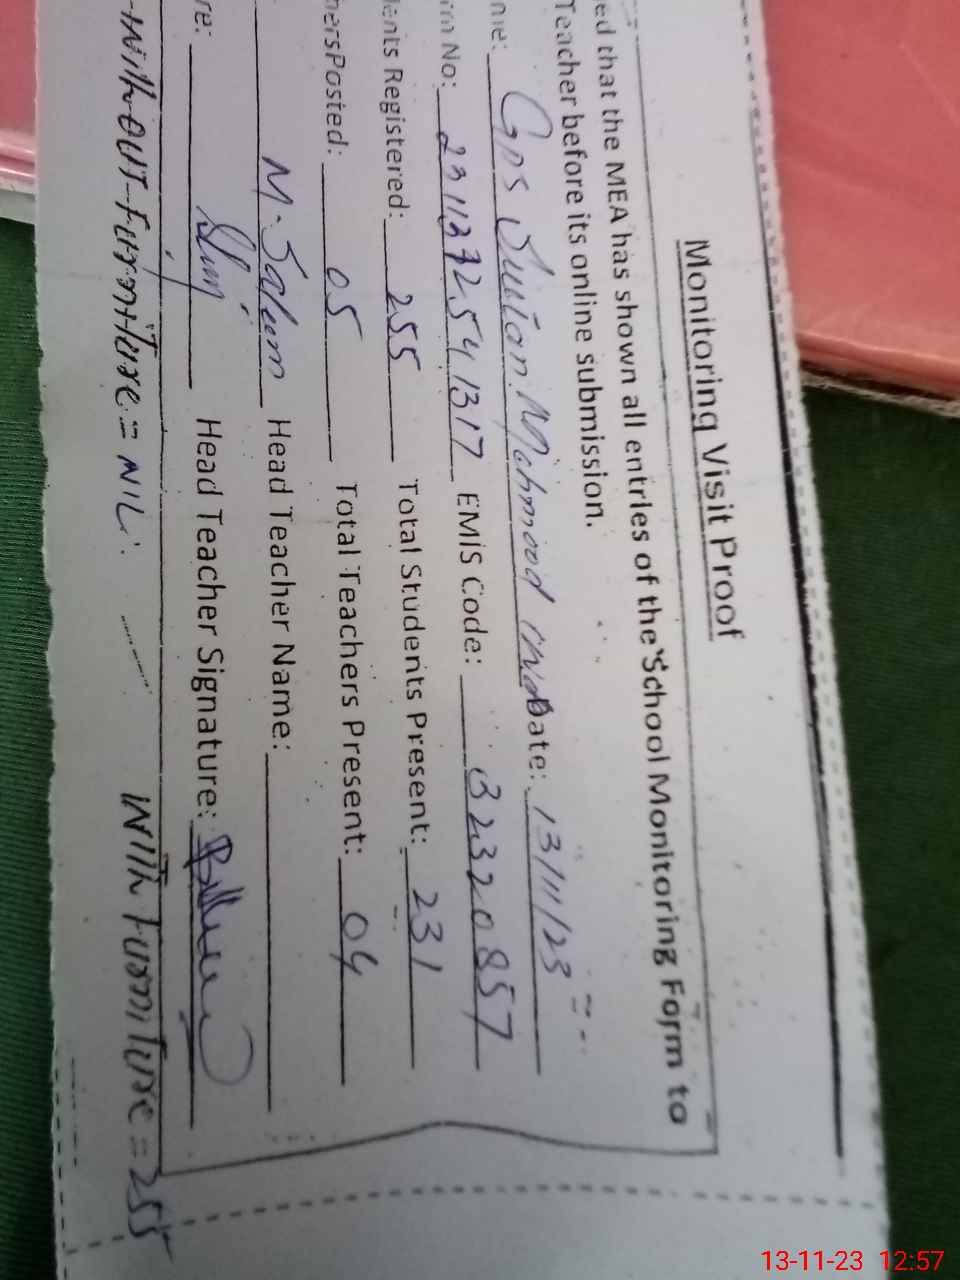 Monitoring Visit Proof
ed that the MEA has shown all entries of the School Monitoring Form to
Teacher before its online submission.
me: Gps Sultan Mahmood Date: 13/11/23
rm No: EMIS Code: 32320857
ents Registered: 255 Total Students Present: 231
hersPosted: 05 Total Teachers Present: 04
M. Salem Head Teacher Name:
re: Head Teacher Signature:
-With-OUT-Furniture = NIL. With Furniture = 255
13-11-23 12:57